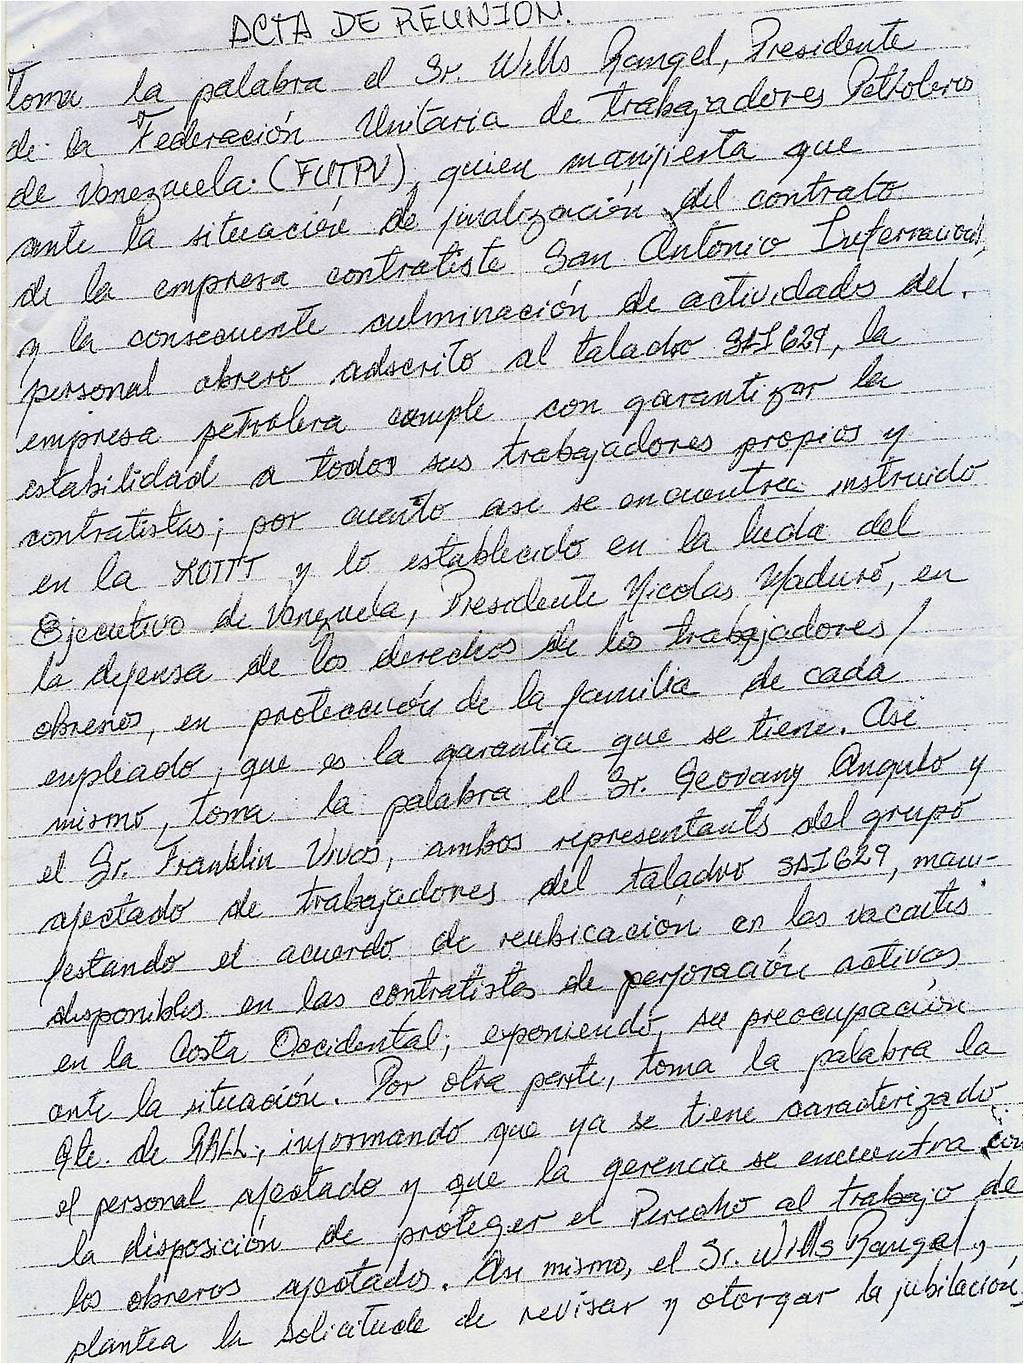 ACTA DE REUNION.
Toma la palabra el Sr. Wills Rangel, Presidente
de la Federación Unitaria de trabajadores Petroleros
de Venezuela. (FUTPV), quien manifiesta que
ante la situación de finalización del contrato
de la empresa contratista San Antonio Internacional,
y la consecuente culminación de actividades del.
personal obrero adscrito al taladro SAI 629, la
empresa petrolera cumple con garantizar la
estabilidad a todos sus trabajadores propios y
contratistas; por cuanto asi se encuentra instruido
en la LOTTT y lo establecido en la lucha del
Ejecutivo de Venezuela, Presidente Nicolas Maduro, en
la defensa de los derechos de los trabajadores /
obreros, en protección de la familia de cada
empleado, que es la garantia que se tiene. Asi
mismo, toma la palabra el Sr. Geovany Angulo y
el Sr. Franklin Vivas, ambos representants del grupo
afectado de trabajadores del taladro SAI 629, mani-
festando el acuerdo de reubicación en las vacantes
disponibles en las contratistas de perforación activas
en la Costa Occidental, exponiendo, su preocupación
ante la situación. Por otra parte, toma la palabra la
Gte. de RRLL, informando que ya se tiene caracterizado
el personal afectado y que la gerencia se encuentra con
la disposición de proteger el Derecho al trabajo de
los obreros afectados. Asi mismo, el Sr. Wills Rangel,
plantea la solicitude de revisar y otorgar la jubilación,